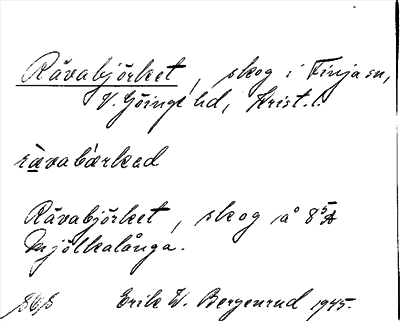 Rävabjörket, skog i Finja sn,
V. Göinge hd, Krist. l.
rävabærked
Rävabjörket, skog å 8
Mjölkalånga.
Erik W. Bergenrud 1945.